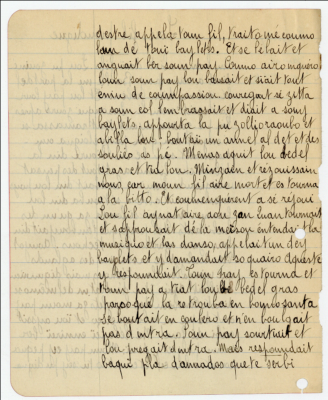 d'estre appela toun fil, traito mé coumo
l'un de tous baylets. Et se lebait et
anguait ber soun pay. Coumo airo enquoro
louin soun pay lou baisait et siait tout
emu de coumpassioun. courregait se zetta
a soun col l'embrassait et diait a souns
baylets: appourta la pu zollio raoubo et
abilla lou: boutai un annel al det et des
souliés as pé. Menas aquit lou bedel
gras et tua lou. Minzam et rézouissain
nous, car moun fil aire mort et es tourna
a la bitto. Et coumenquèrent a se rejoui
Lou fil aynat aire aou zan en an tournant
et s'approuchait de la meisou entendait la
musiquo et las danso, appelait un des
baylets et y demandait so qu'airo aqueste
y respoundait. Toun pay es tourna et
toun pay a tuat lou bedel gras
parço que la retrouba en bouno santa
Se boutait en coulero et n'en boulgait
pas d'intra. Soun pay sourtiait et
lou pregait d'intra. Mais respoundait
baqui pla d'annados que te serbi